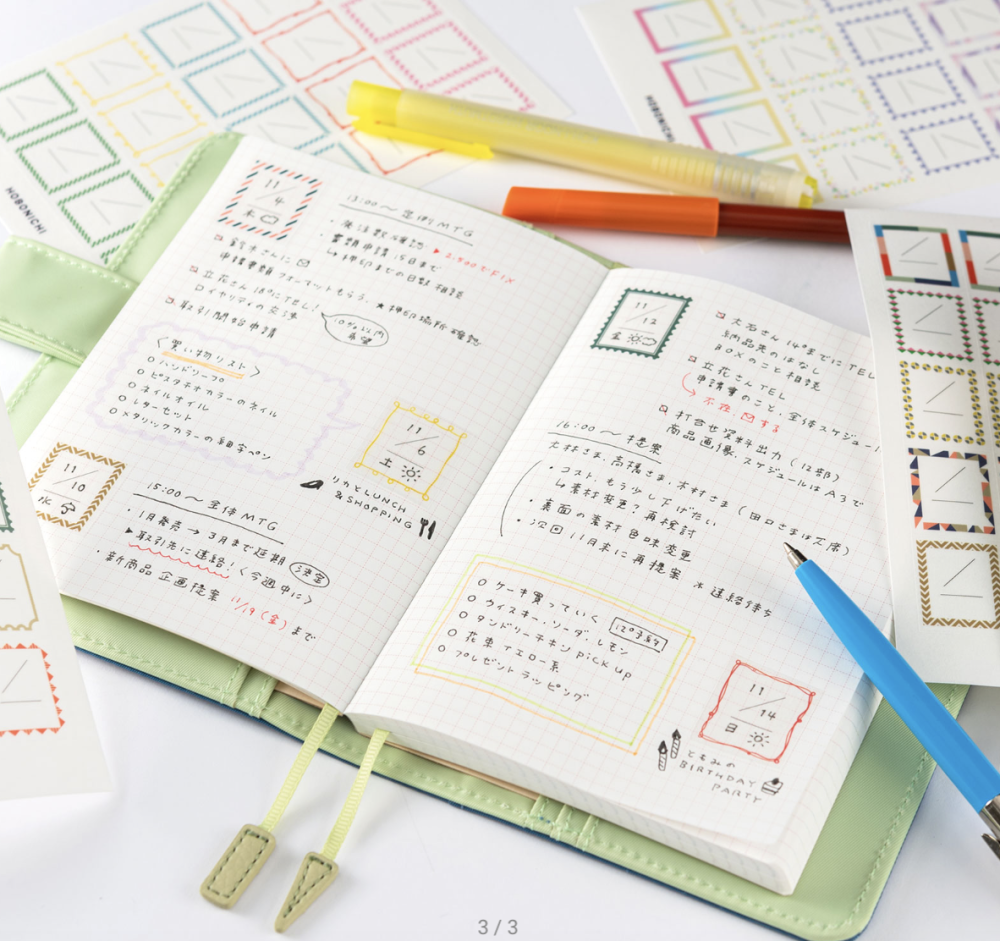 HOBONICHI
HOBONICHI
11/4
木
13:00〜 定例MTG
・発注数確認 ▶ 2,400でFIX
・書類申請 15日まで
↳押印までの日数 相談
鈴木さんに
申請書類フォーマットもらう、★押印場所確認
立花さん 18°にTEL!
ロイヤリティの交渉
10%以内
希望
取引開始申請
〈買い物リスト〉
○ハンドソープ
○ピスタチオカラーのネイル
○ネイルオイル
○レターセット
○メタリックカラーの細字ペン
11/6
土
リカとLUNCH
&SHOPPING
11/10
水
15:00〜 全体MTG
・1月発売→3月まで延期 決定
▶取引先に連絡!〈今週中に〉
・新商品 企画提案 11/19(金)まで
11/12
金
大石さん 14°までにTEL
納品先のはなし
BOXのこと相談
立花さんTEL
申請書のこと、全体スケジュール
不在、する
打合せ資料出力(12部)
商品画像、スケジュールはA3で
16:00〜 提案
大林さま、高橋さま、木村さま(田口さまは欠席)
・コスト、もう少し下げたい
↳素材変更?再検討
・裏面の素材 色味変更
・次回 11月末に再提案 ＊連絡待ち
○ケーキ買っていく 12°予約
○ウイスキー、ソーダ、レモン
○タンドリーチキン pick up
○花束 イエロー系
○プレゼント ラッピング
11/14
日
ともみの
BIRTHDAY
PARTY
3 / 3